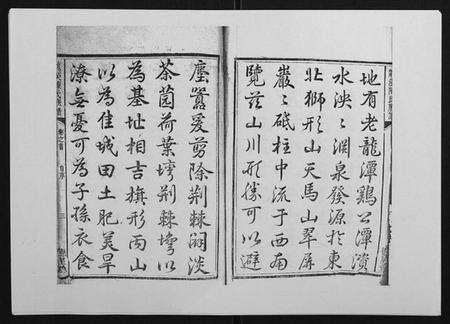 地有老龍潭鷄公潭濆
水泱〻淵泉發源於東
北獅形山天馬山翠屏
巖〻砥柱中流于西南
覽茲山川形勝可以避
塵囂爰剪除荆棘闢淡
茶園荷葉塆荆棘塆以
為基址相吉旗形南山
以為佳城田土肥美旱
潦無憂可為子孫衣食